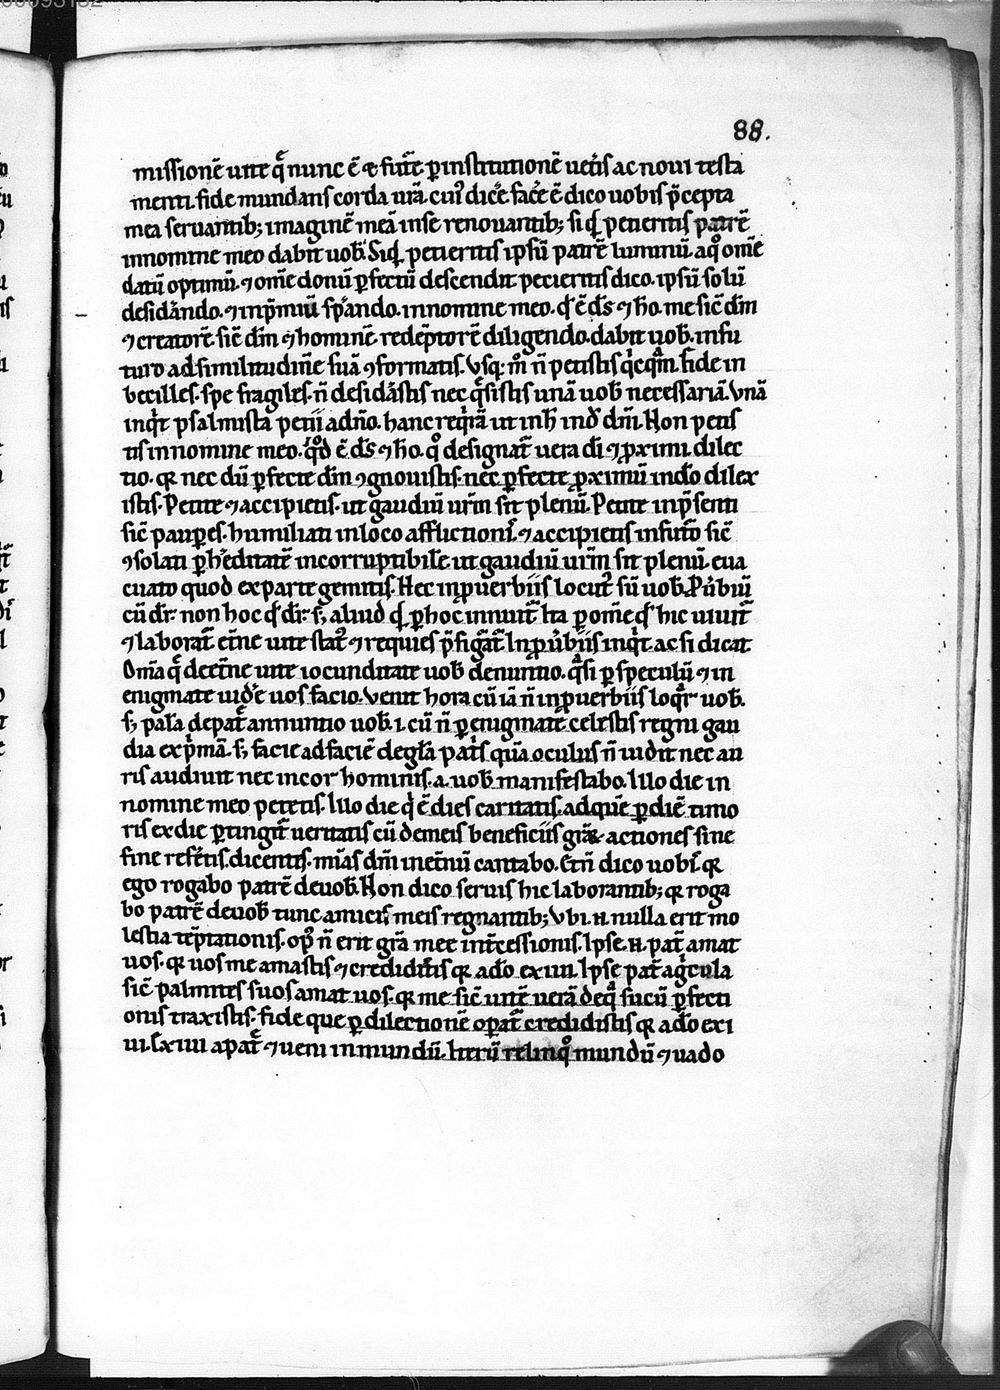 88.
missionē uite q̄ nunc ē & fut̄e ꝑ institutionē uet̄is ac noui testa
menti. fide mundans corda ur̄a. cui⁹ dic̄e fac̄e ē dico uobis p̄cepta
mea seruantib; imaginē meā in se renouantib; siqd̄ petieritis patrē
in nomine meo dabit uob̄. Siqd̄ petieritis ipsū patrē luminū. a q̊ om̄e
datū optimū. ⁊ om̄e donū ꝑfectū descendit petieritis dico. ipsū solū
desid̄ando. ⁊ in p̄miū sp̄ando. in nomine meo. qd̄ ē d̄s ⁊ ho. me sic̄ dm̄
⁊ creatorē sic̄ dm̄ ⁊ hominē redēptorē diligendo. dabit uob̄. in fu
turo ad similitudin̄e suā ꝯformatis. Vsq; m̊ n̄ petistis q̇cq̄m. fide in
becilles. spe fragiles. n̄ desid̄astis nec q̄sistis unā uob̄ necessariā. Vnā
inq̇t psalmista petii a dn̄o. hanc req̇rā ut inh̄ in do᷒ dn̄i. Non petis
tis in nomine meo. q̊d ē d̄s ⁊ ho. q̊ designat᷒ uera dī ⁊ ꝓximi dilec
tio. qꝛ nec dū ꝑfecte dm̄ ꝯgnouistis. nec ꝑfecte ꝓximū in do᷒ dilex
istis. Petite ⁊ accipietis. ut gaudiū ur̄m sit plenū. Petite in p̄senti
sic̄ pauꝑes. humiliati in loco afflictionis. ⁊ accipietis in futo᷒ sic̄
ꝯsolati ꝑ h̄editatē incorruptibilē. ut gaudiū ur̄m sit plenū. eua
cuato quod ex parte gemitis. Hec in ꝓuerbiis locut⁹ sū uob̄. Pūbiū
cū dr̄. non hoc qd̄ dr̄. s; aliud qd̄ ꝑ hoc innuit᷒. Ita ꝑ om̄e qd̄ hic uiuit᷒
⁊ laborat᷒ et̄ne uite stat⁹ ⁊ requies p̄figat᷒. In ꝓūbiis inq̇t ac si dicat
Om̄a q̄ de et̄ne uite iocunditate uob̄ denuntio. q̄si ꝑ speculū ⁊ in
enigmate uid̄e uos facio. Venit hora cū iā n̄ in ꝓuerbiis loq̄r uob̄.
s; palā de pat̄ annuntio uob̄. i. cū n̄ ꝑ enigmatē celestis regni gau
dia exp̄mā. s; facie ad faciē de gl̄a pat̄is quā oculus n̄ uidit nec au
ris audiuit nec in cor hominis. a. uob̄ manifestabo. Illo die in
nomine meo petetis. Illo die q̇ ē dies caritatis. ad quē ꝑ diē timo
ris ex die ꝑtingit᷒ ueritatis cū de meis beneficiis grā& actiones sine
fine ref̄etis. dicentis. mīas dn̄i in et̄nū cantabo. Et n̄ dico uobis. qꝛ
ego rogabo patrē de uob̄. Non dico seruis hic laborantib; qꝛ roga
bo patrē de uob̄ tunc amicis meis regnantib; Vbi. n. nulla erit mo
lestia tēptationis. op⁹ n̄ erit grā mee int̄cessionis. Ipse. n. pat̄ amat
uos. qꝛ uos me amastis ⁊ credidistis qꝛ a do᷒ exiui. Ipse pat̄ aġcola
sic̄ palmites suos amat uos. qꝛ me sic̄ uitē uerā de q̄ sucū ꝑfecti
onis traxistis. fide que ꝑ dilectionē oꝑat᷒ credidistis qꝛ a do᷒ exi
ui. Exiui a pat̄ ⁊ ueni in mundū. Iterū relinq̊ mundū ⁊ uado